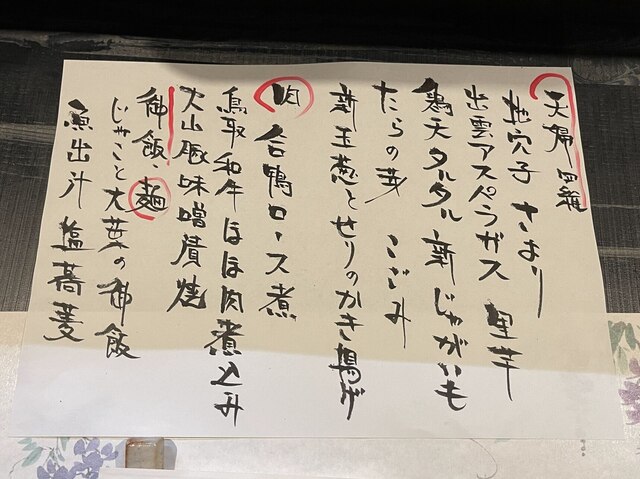 天婦羅
地穴子 さより
出雲アスパラガス 里芋
鶏天タルタル 新じゃがいも
たらの芽 こごみ
新玉葱とせりのかき揚げ
肉 合鴨ロース煮
鳥取和牛ほほ肉煮込み
大山豚味噌漬焼
御飯・麺
じゃこと大葉の御飯
魚出汁塩蕎麦